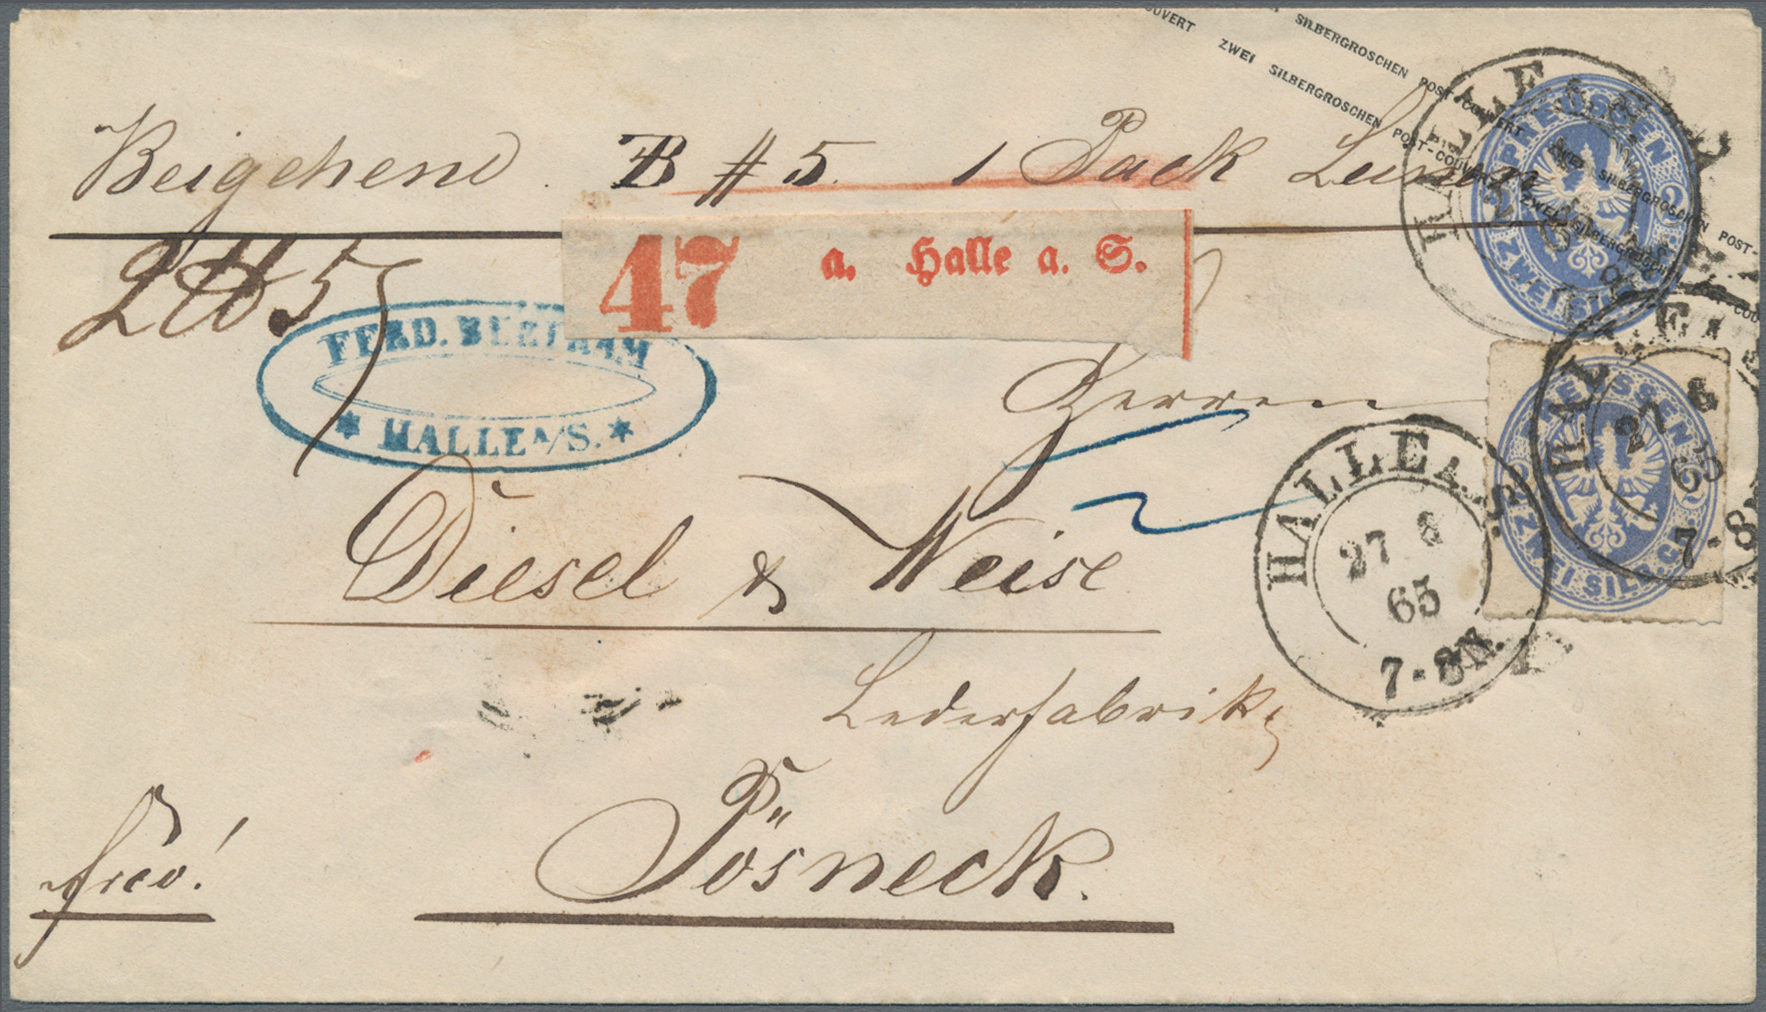 COUVERT ZWEI SILBERGROSCHEN POST-COUVERT ZWEI SILBERGROSCHEN
SILBERGROSCHEN POST-COUVERT ZWEI SILBERGROSCHEN POST-
Beigehend B # 5. 1 Pack
HALLE A. S.
PREUSSEN
ZWEI SILB. GR.
47 a. Halle a. S.
5
FERD. BERTRAM
* HALLE A/S. *
Herren
HALLE A. S.
27 8
65
7-8N.
PREUSSEN
ZWEI SILB. GR.
HALLE A. S.
27 8
65
7-8N.
Diesel & Weise
Lederfabrik,
Pösneck.
frco!